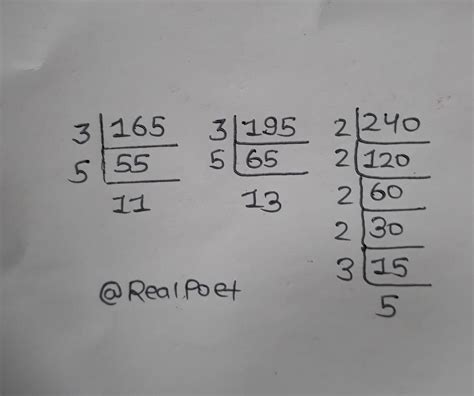 3 165
5 55
11
3 195
5 65
13
2 240
2 120
2 60
2 30
3 15
5
@RealPoet